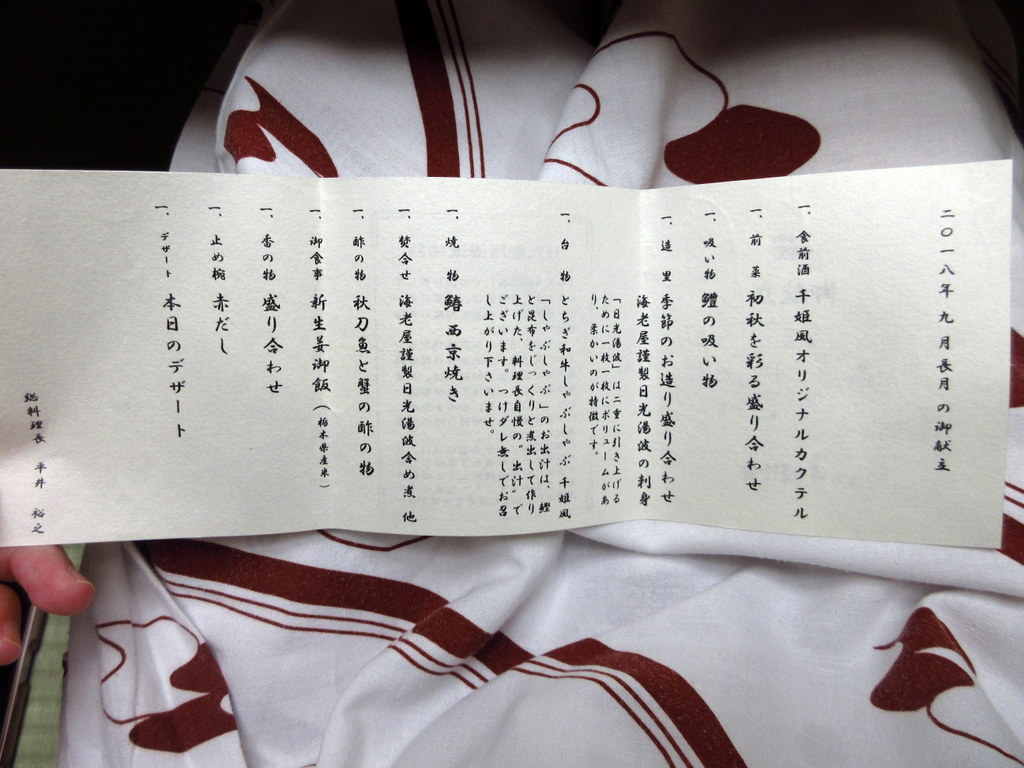 二〇一八年九月長月の御献立
一、食前酒 千姫風オリジナルカクテル
一、前菜 初秋を彩る盛り合わせ
一、吸い物 鱧の吸い物
一、造里 季節のお造り盛り合わせ
海老屋謹製日光湯波の刺身
「日光湯波」は二重に引き上げる
ために一枚一枚にボリュームがあ
り、柔かいのが特徴です。
一、台物 とちぎ和牛しゃぶしゃぶ 千姫風
「しゃぶしゃぶ」のお出汁は、鰹
と昆布をじっくりと煮出して作り
上げた、料理長自慢の〝出汁〟で
ございます。つけダレ無しでお召
し上がり下さいませ。
一、焼物 鰆西京焼き
一、焚合せ 海老屋謹製日光湯波含め煮 他
一、酢の物 秋刀魚と蟹の酢の物
一、御食事 新生姜御飯（栃木県産米）
一、香の物 盛り合わせ
一、止め椀 赤だし
一、デザート 本日のデザート
総料理長 平井 裕之